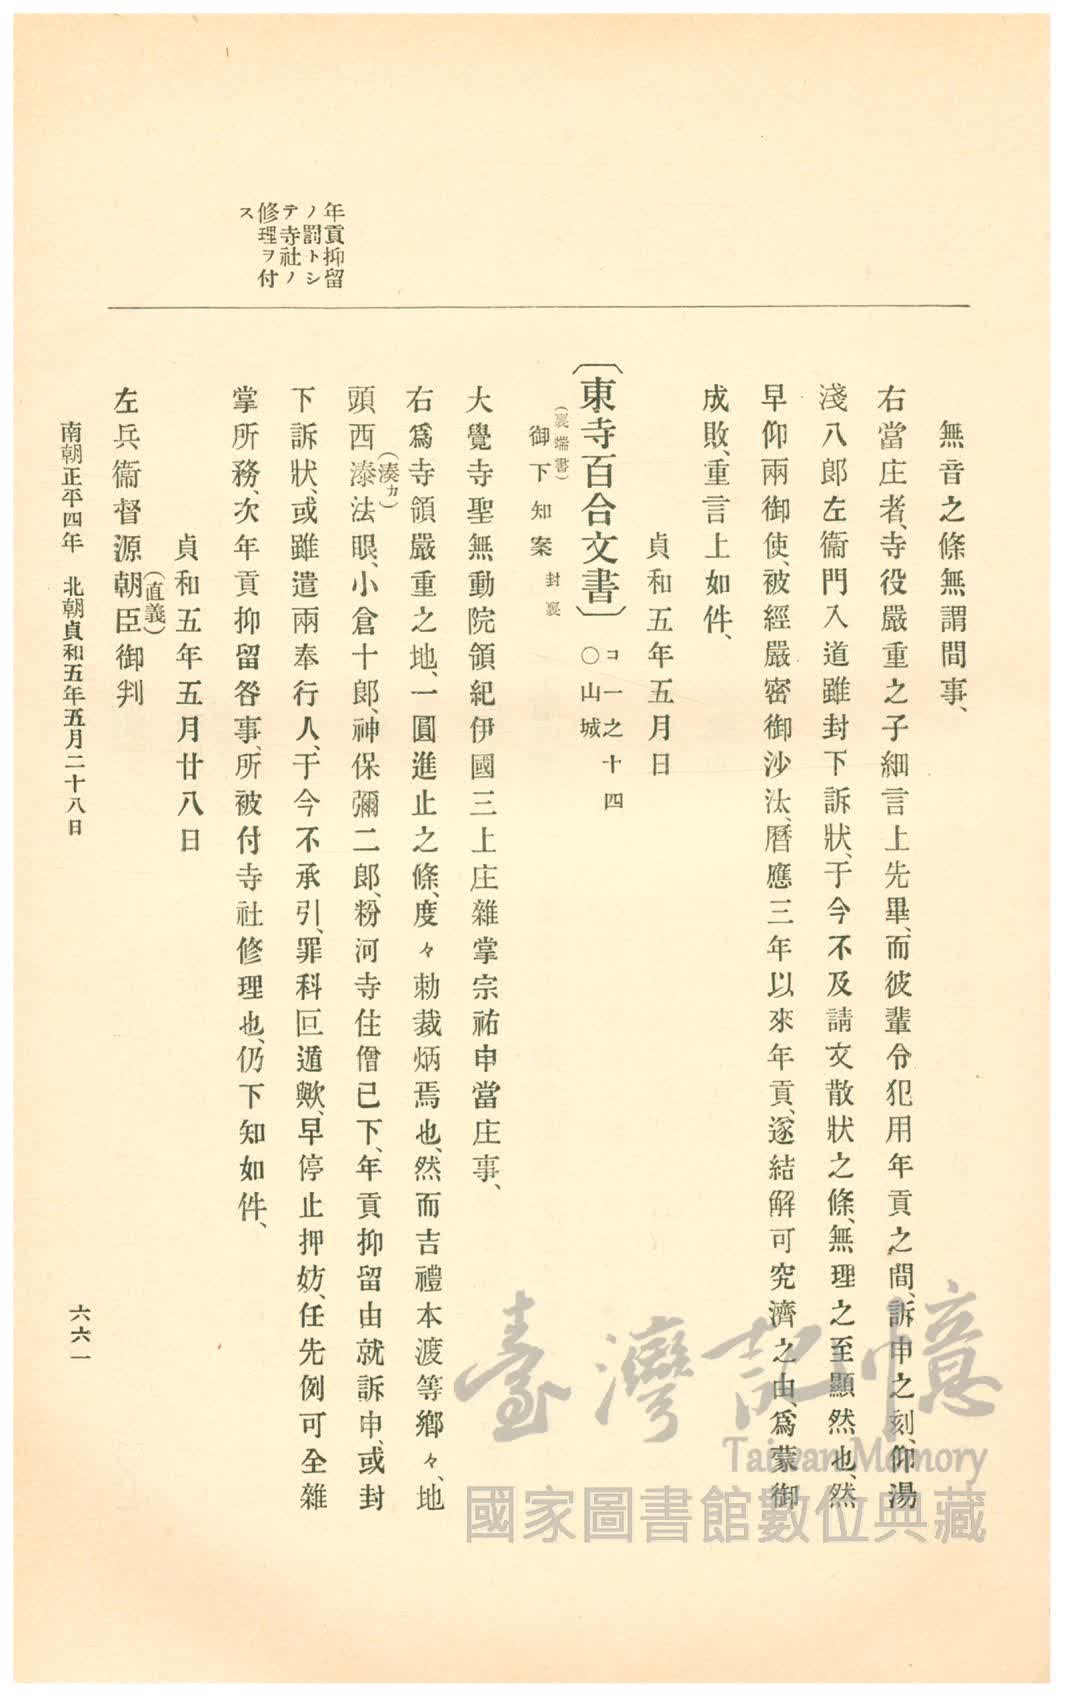 年貢抑留
ノ罰トシ
テ寺社ノ
修理ヲ付
ス
無音之條無謂間事、
右當庄者、寺役嚴重之子細言上先畢、而彼輩令犯用年貢之間、訴申之刻、仰湯
淺八郎左衞門入道雖封下訴狀、于今不及請文散狀之條、無理之至顯然也、然
早仰兩御使、被經嚴密御沙汰、曆應三年以來年貢、遂結解可究濟之由、爲蒙御
成敗、重言上如件、
貞和五年五月日
〔東寺百合文書〕 コ一之十四 ○山城
(裏端書)
御下知案 封裏
大覺寺聖無動院領紀伊國三上庄雜掌宗祐申當庄事、
右爲寺領嚴重之地、一圓進止之條、度々勅裁炳焉也、然而吉禮本渡等鄕々、地
頭西溙(湊カ)法眼、小倉十郎、神保彌二郎、粉河寺住僧已下、年貢抑留由就訴申、或封
下訴狀、或雖遣兩奉行人、于今不承引、罪科叵遁歟、早停止押妨、任先例可全雜
掌所務、次年貢抑留咎事、所被付寺社修理也、仍下知如件、
貞和五年五月廿八日
左兵衞督源朝臣(直義)御判
南朝正平四年 北朝貞和五年五月二十八日
六六一
臺灣記憶
Taiwan Memory
國家圖書館數位典藏